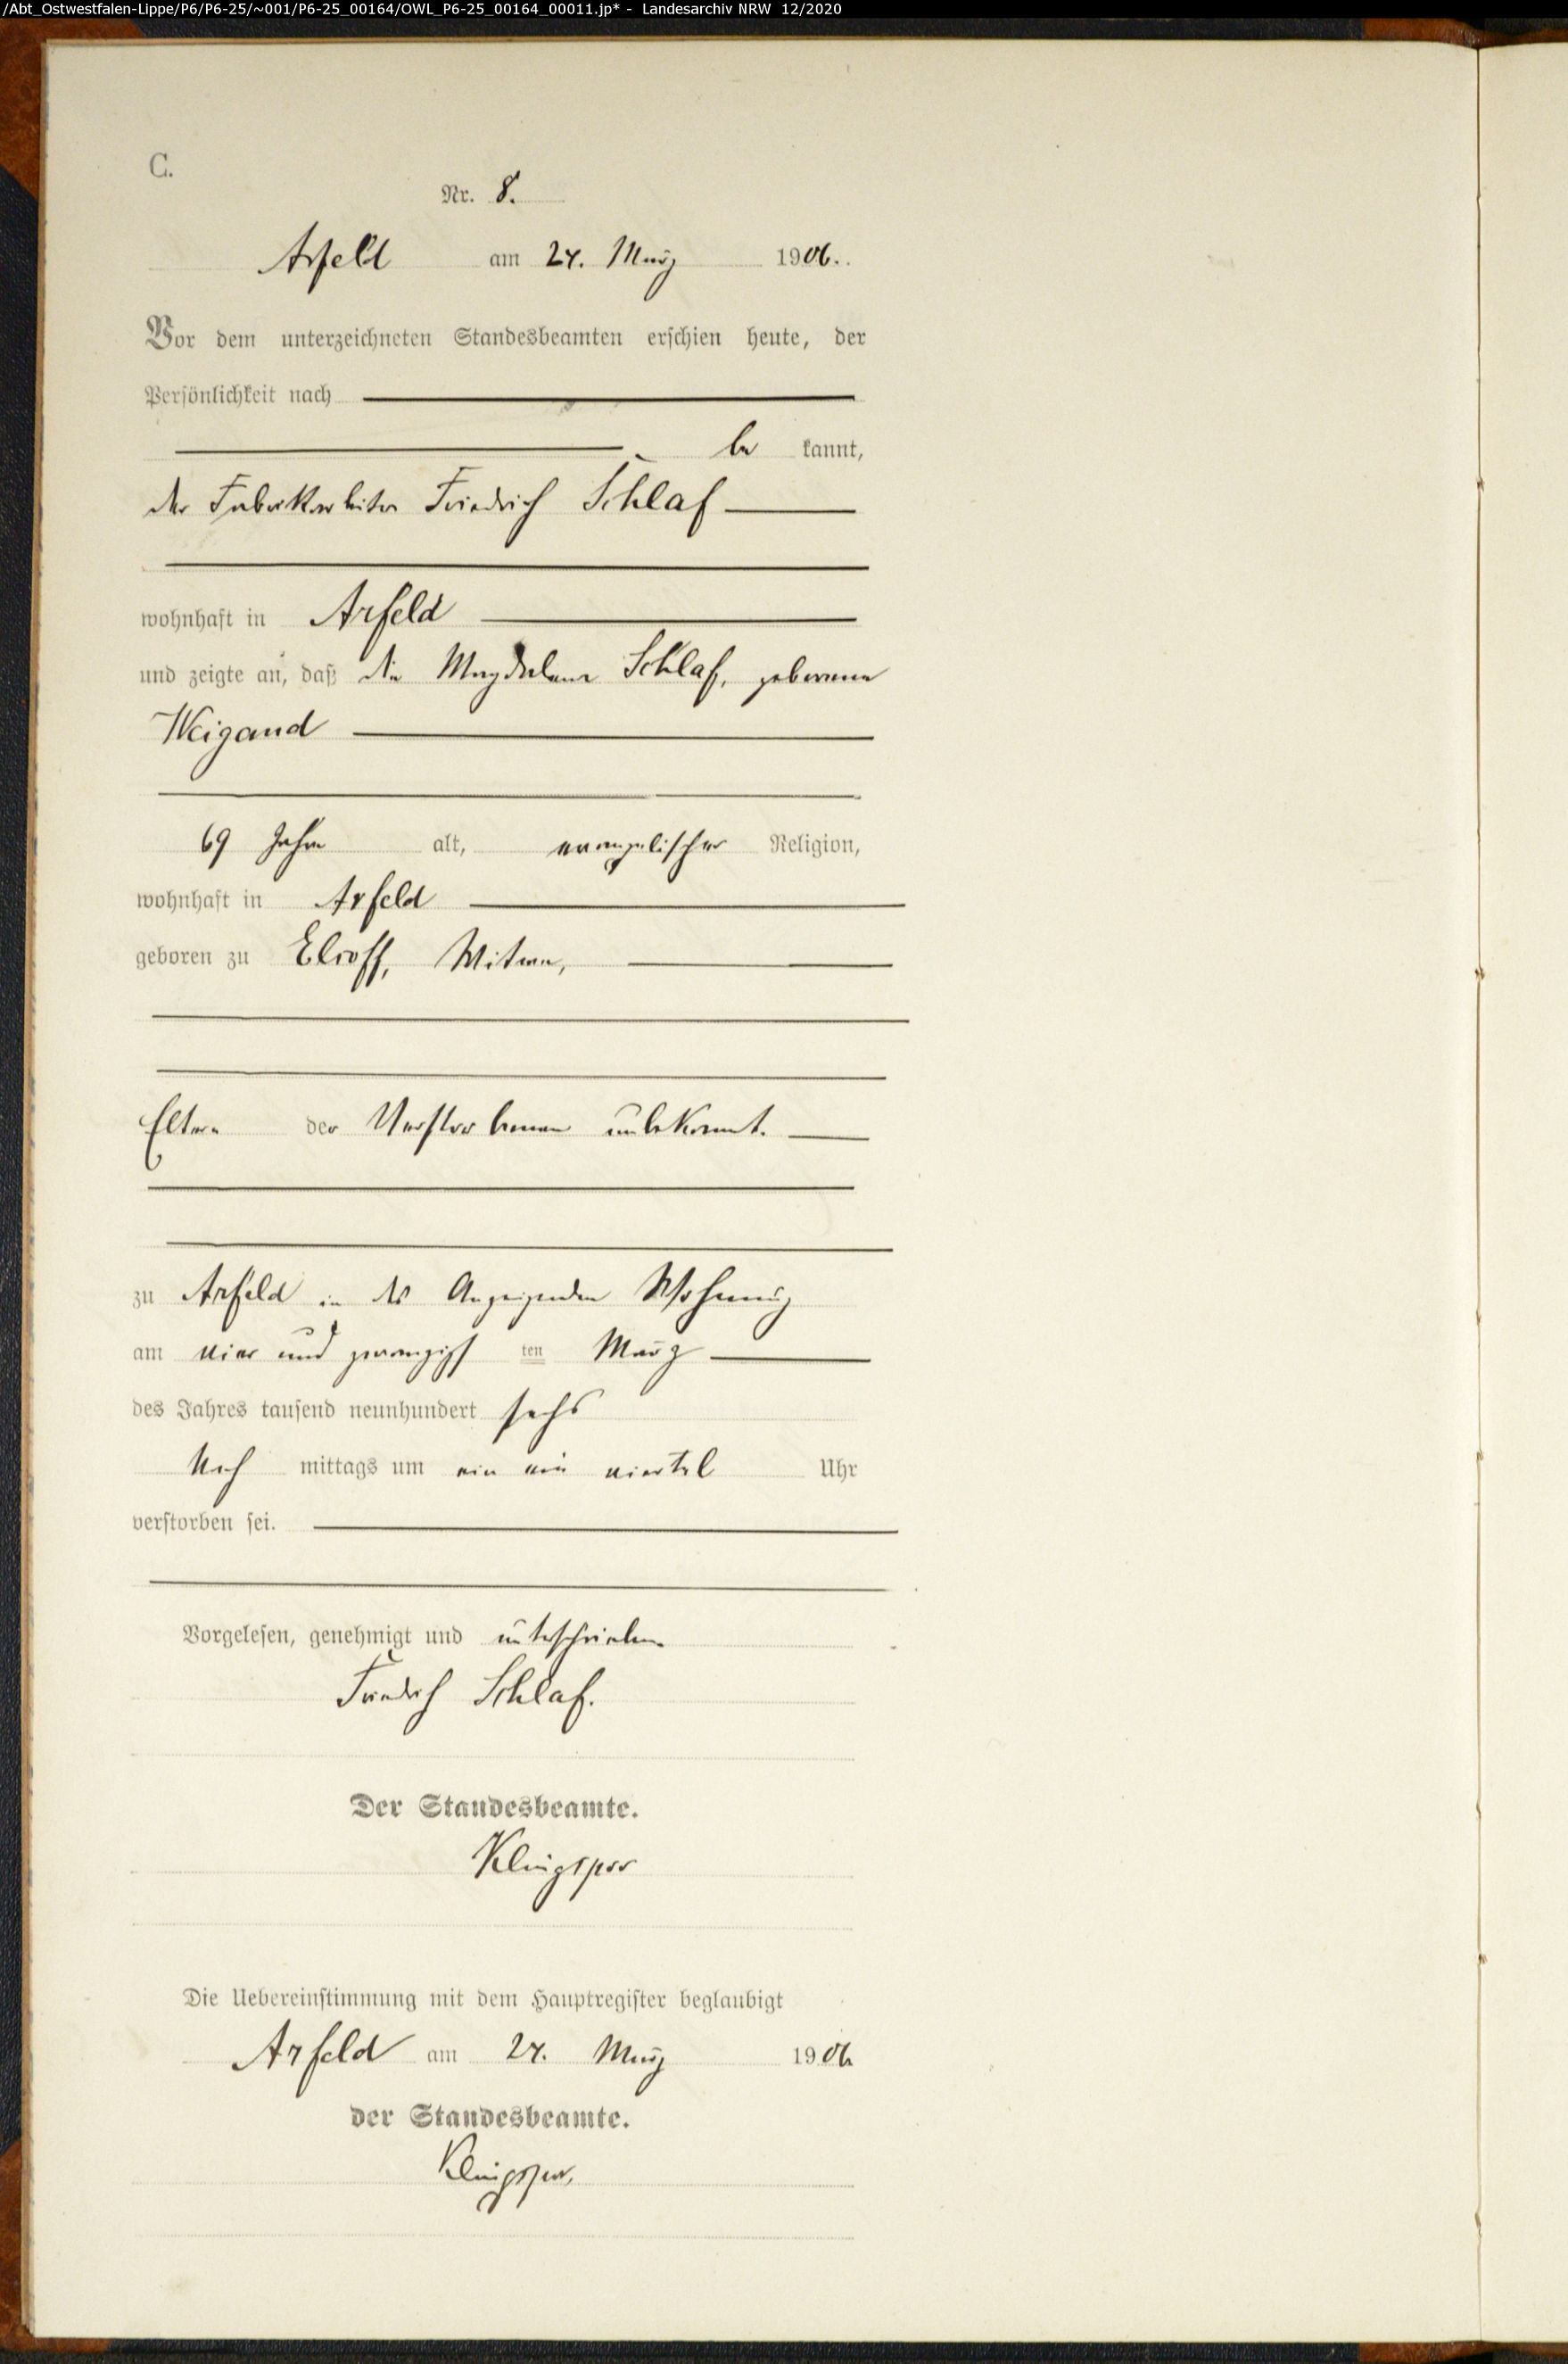 /Abt_Ostwestfalen-Lippe/P6/P6-25/~001/P6-25_00164/OWL_P6-25_00164_00011.jp* - Landesarchiv NRW 12/2020
C.
Nr. 8.
Arfeld am 24. März 1906.
Vor dem unterzeichneten Standesbeamten erschien heute, der
Persönlichkeit nach
be kannt,
der Fabrikarbeiter Friedrich Schlaf
wohnhaft in Arfeld
und zeigte an, daß die Magdalene Schlaf, geborene
Weigand
69 Jahre alt, evangelischer Religion,
wohnhaft in Arfeld
geboren zu Elsoff, Witwe,
Eltern der Verstorbenen unbekannt.
zu Arfeld in des Anzeigenden Wohnung
am vier und zwanzigsten März
des Jahres tausend neunhundert sechs
Nach mittags um ein ein viertel Uhr
verstorben sei.
Vorgelesen, genehmigt und unterschrieben
Friedrich Schlaf.
Der Standesbeamte.
Klingspor
Die Uebereinstimmung mit dem Hauptregister beglaubigt
Arfeld am 24. März 1906
der Standesbeamte.
Klingspor